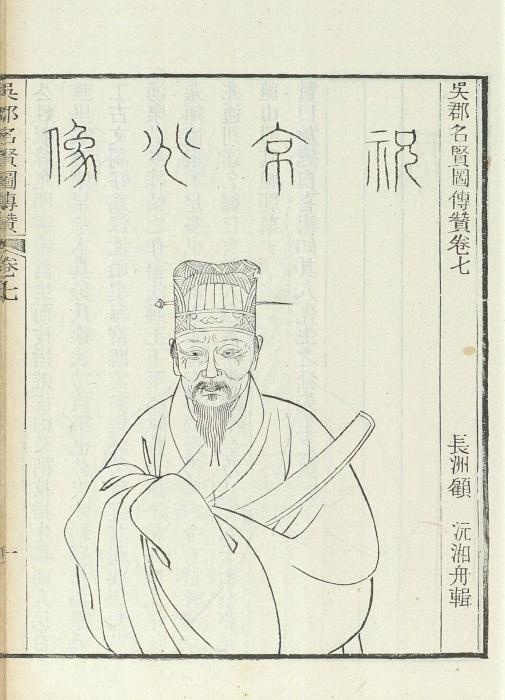 吳郡名賢圖傳贊卷七
長洲顧 沅湘舟輯
祝京兆像
吳郡名賢圖傳贊 卷七
一